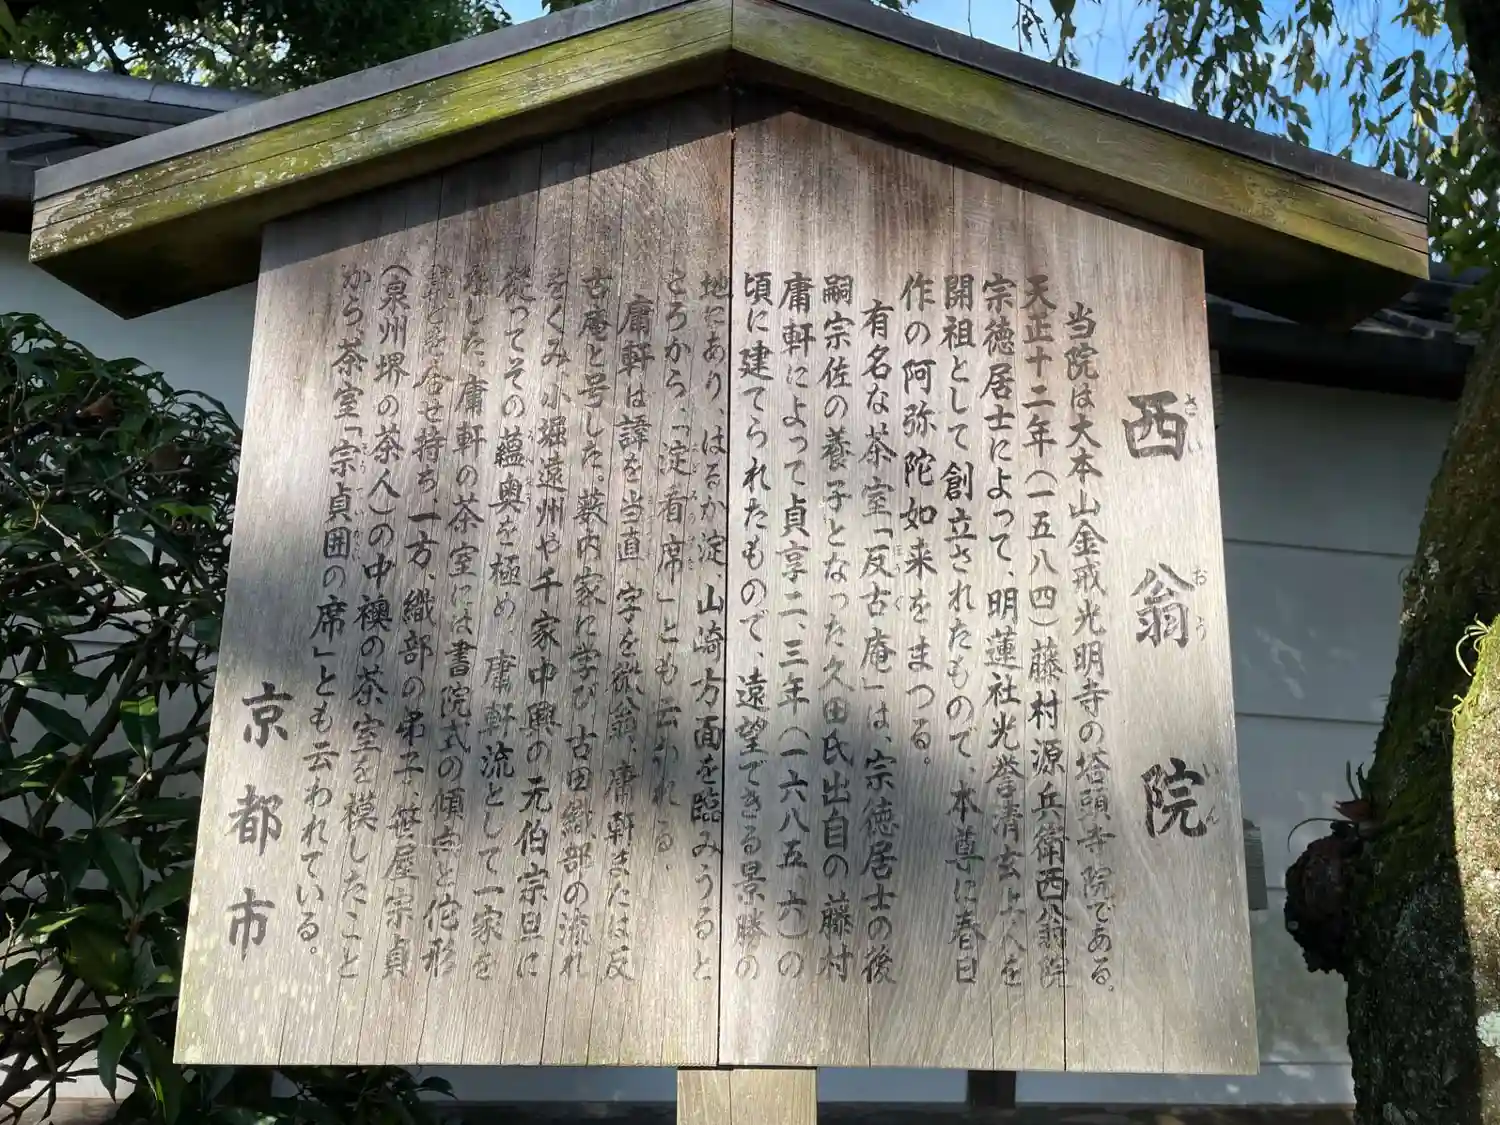 西翁院
さいおういん
当院は大本山金戒光明寺の塔頭寺院である。
天正十二年（一五八四）藤村源兵衛西翁院
宗徳居士によって、明蓮社光誉清玄上人を
開祖として創立されたもので、本尊に春日
作の阿弥陀如来をまつる。
有名な茶室「反古庵」は、宗徳居士の後
ほうぐ
嗣宗佐の養子となった久田氏出自の藤村
庸軒によって貞享二、三年（一六八五、六）の
頃に建てられたもので、遠望できる景勝の
地にあり、はるか淀、山崎方面を臨みうると
ころから、「淀看席」とも云われる。
よどみのせき
庸軒は諱を当直、字を微翁、庸軒または反
古庵と号した。薮内家に学び古田織部の流れ
をくみ、小堀遠州や千家中興の元伯宗旦に
従ってその蘊奥を極め、庸軒流として一家を
なした。庸軒の茶室には書院式の傾向と佗形
とを合せ持ち、一方、織部の弟子、笹屋宗貞
（泉州堺の茶人）の中襖の茶室を模したこと
から、茶室「宗貞囲の席」とも云われている。
そうていかこい
京都市